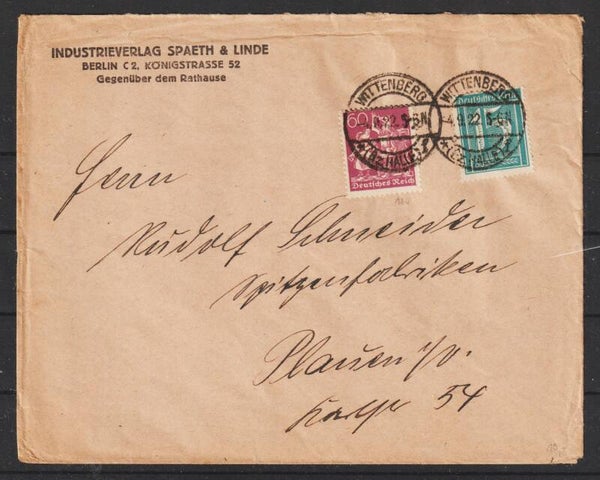 INDUSTRIEVERLAG SPAETH & LINDE
BERLIN C2, KÖNIGSTRASSE 52
Gegenüber dem Rathause
WITTENBERG
4.9.22 5-6N
(Bz. HALLE)
WITTENBERG
4.9.22 5-6N
(Bz. HALLE)
60
Deutsches Reich
Deutsches Reich
15
Herrn
Rudolf Schneider
Spitzenfabriken
Plauen i/V.
54